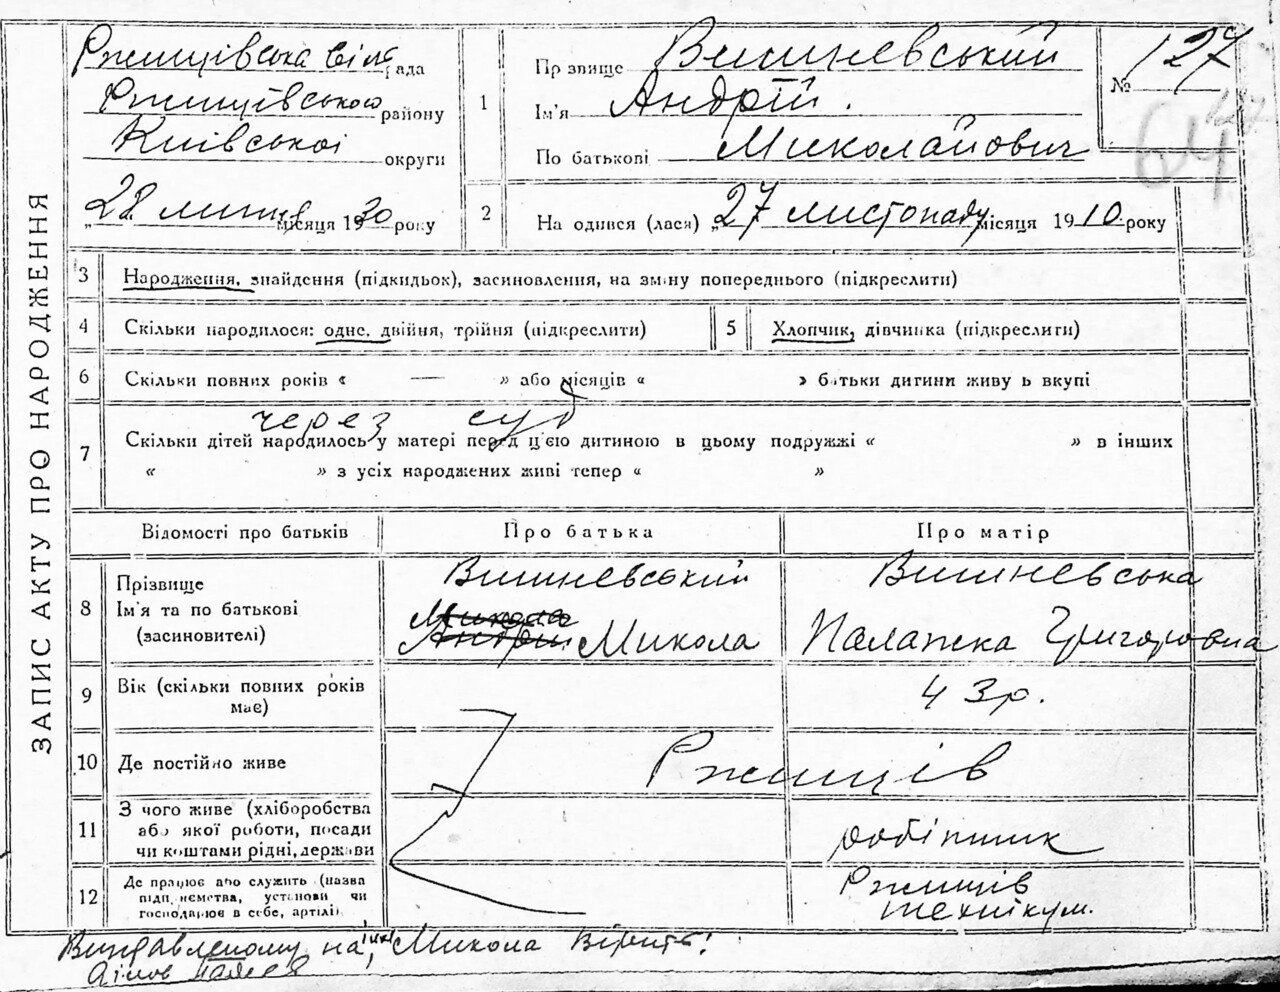 ЗАПИС АКТУ ПРО НАРОДЖЕННЯ
Ржищівська рада
Ржищівського району
Київської округи
„28 липня місяця 1930 року
1
Прзвище Вишневський
Ім'я Андрій.
По батькові Миколайович
№ 127
64
2
На одився (лася) „27 листопаду місяця 1910 року
3 Народження, знайдення (підкидьок), засиновлення, на зміну попереднього (підкреслити)
4 Скільки народилося: одне, двійня, трійня (підкреслити)
5 Хлопчик, дівчинка (підкреслити)
6 Скільки повних років « — » або місяців « » батьки дитини живу ь вкупі
через суд
7 Скільки дітей народилось у матері перед цією дитиною в цьому подружжі « » в інших
« » з усіх народжених живі тепер « »
Відомості про батьків Про батька Про матір
8 Прізвище
Ім'я та по батькові
(засиновителі)
Вишневський
Микола
Андрій Микола
Вишневська
Палажка Григоровна
9 Вік (скільки повних років
має)
43 р.
10 Де постійно живе
Ржищів
11 З чого живе (хліборобства
або якої роботи, посади
чи коштами рідні, держави
робітник
12 Де працює або служить (назва
підп иємства, установи чи
господарює в себе, артілі)
Ржищів
технікум.
Виправленому на Микола вірить!